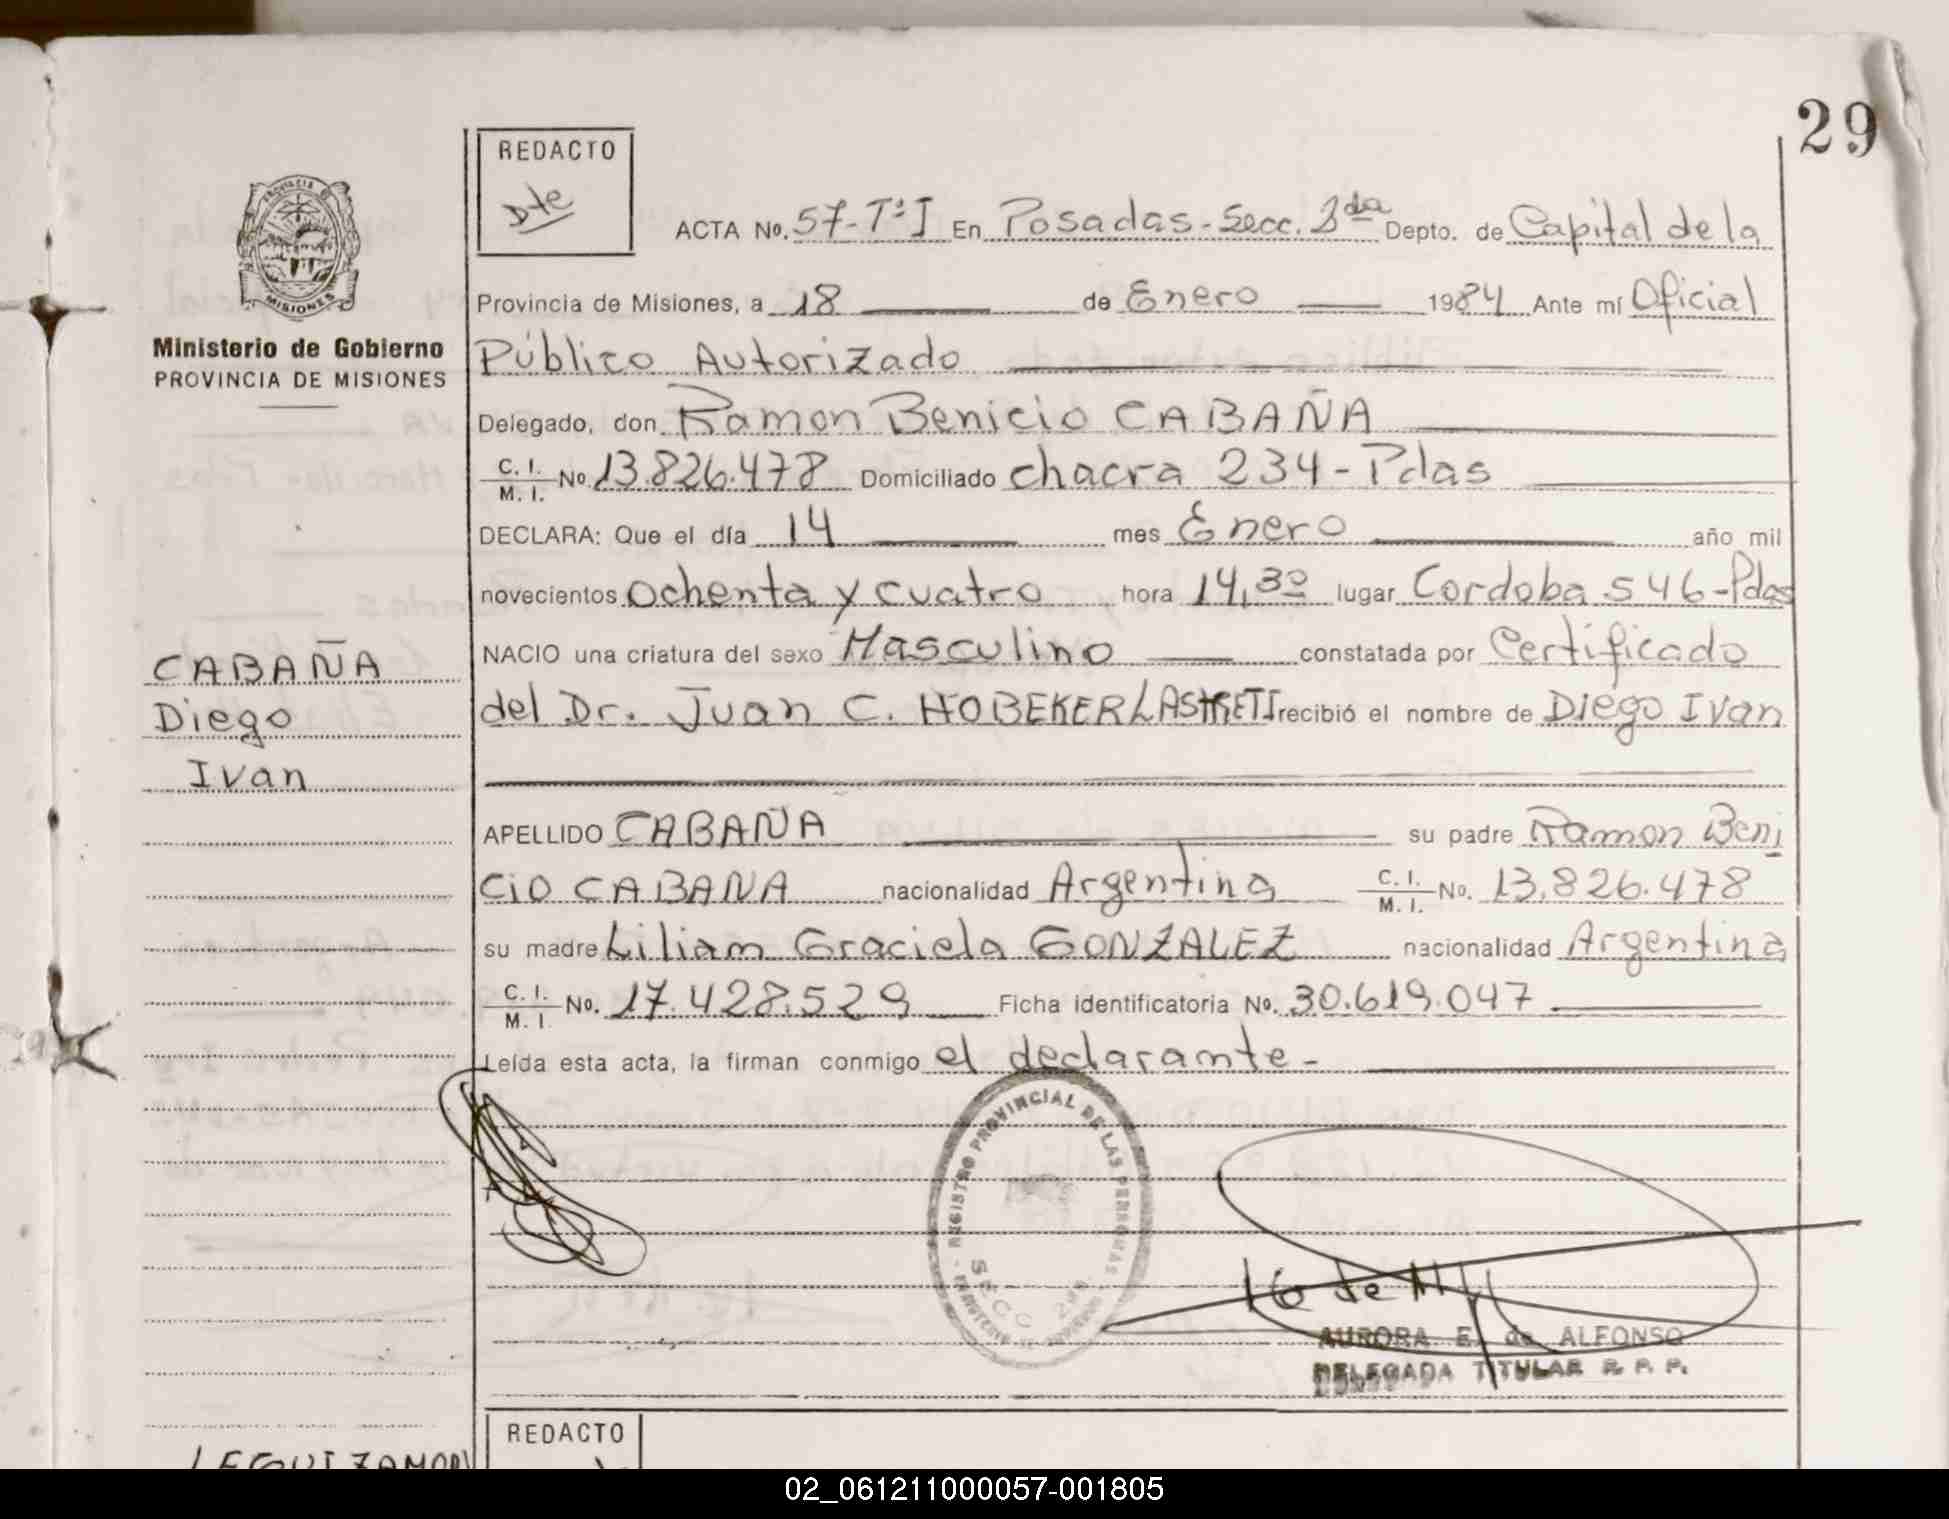 29
REDACTO
Dte
ACTA No. 57-TºI En Posadas-Secc. 2da Depto. de Capital de la
Provincia de Misiones, a 18 de Enero 1984 Ante mí Oficial
Público Autorizado
Delegado, don Ramon Benicio CABAÑA
C. I. / M. I. No. 13.826.478 Domiciliado chacra 234-Pdas
DECLARA: Que el día 14 mes Enero año mil
novecientos ochenta y cuatro hora 14,30 lugar Cordoba 546-Pdas
NACIO una criatura del sexo Masculino constatada por Certificado
del Dr. Juan C. HOBEKER LASTRETI recibió el nombre de Diego Ivan
APELLIDO CABAÑA su padre Ramon Beni
cio CABAÑA nacionalidad Argentina C. I. / M. I. No. 13.826.478
su madre Liliam Graciela GONZALEZ nacionalidad Argentina
C. I. / M. I. No. 17.428.529 Ficha identificatoria No. 30.619.047
Leída esta acta, la firman conmigo el declarante-
PROVINCIA
MISIONES
Ministerio de Gobierno
PROVINCIA DE MISIONES
CABAÑA
Diego
Ivan
REGISTRO PROVINCIAL DE LAS PERSONAS
SECC 2da
AURORA E. de ALFONSO
DELEGADA TITULAR R. P. P.
REDACTO
LEGUIZAMON
02_061211000057-001805